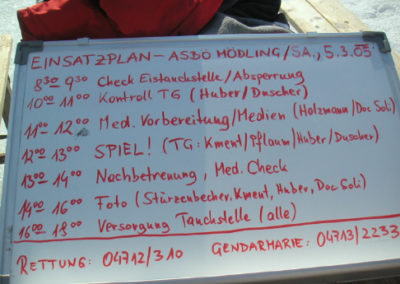 EINSATZPLAN - ASBÖ MÖDLING/SA., 5.3.05:
8³⁰ - 9³⁰ Check Eistauchstelle/Absperrung
10⁰⁰ - 11⁰⁰ Kontroll TG (Huber/Duscher)
11⁰⁰ - 12⁰⁰ Med. Vorbereitung/Medien (Holzmann/Doc Soli)
12⁰⁰ - 13⁰⁰ SPIEL! (TG: Kment/Pflaum/Huber/Duscher)
13⁰⁰ - 14⁰⁰ Nachbetreuung, Med. Check
14⁰⁰ - 16⁰⁰ Foto (Stürzenbecher, Kment, Huber, Doc Soli)
16⁰⁰ - 18⁰⁰ Versorgung Tauchstelle (alle)
RETTUNG: 04712/310 GENDARMARIE: 04713/2233